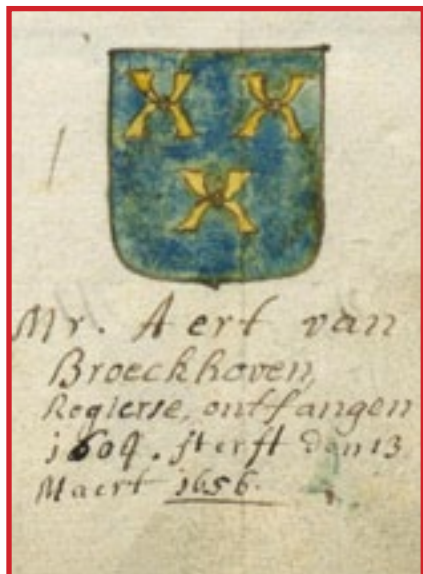 Mr. Aert van
Broeckhoven,
Regierse, ontfangen
1609. sterft den 13
Maert 1656.